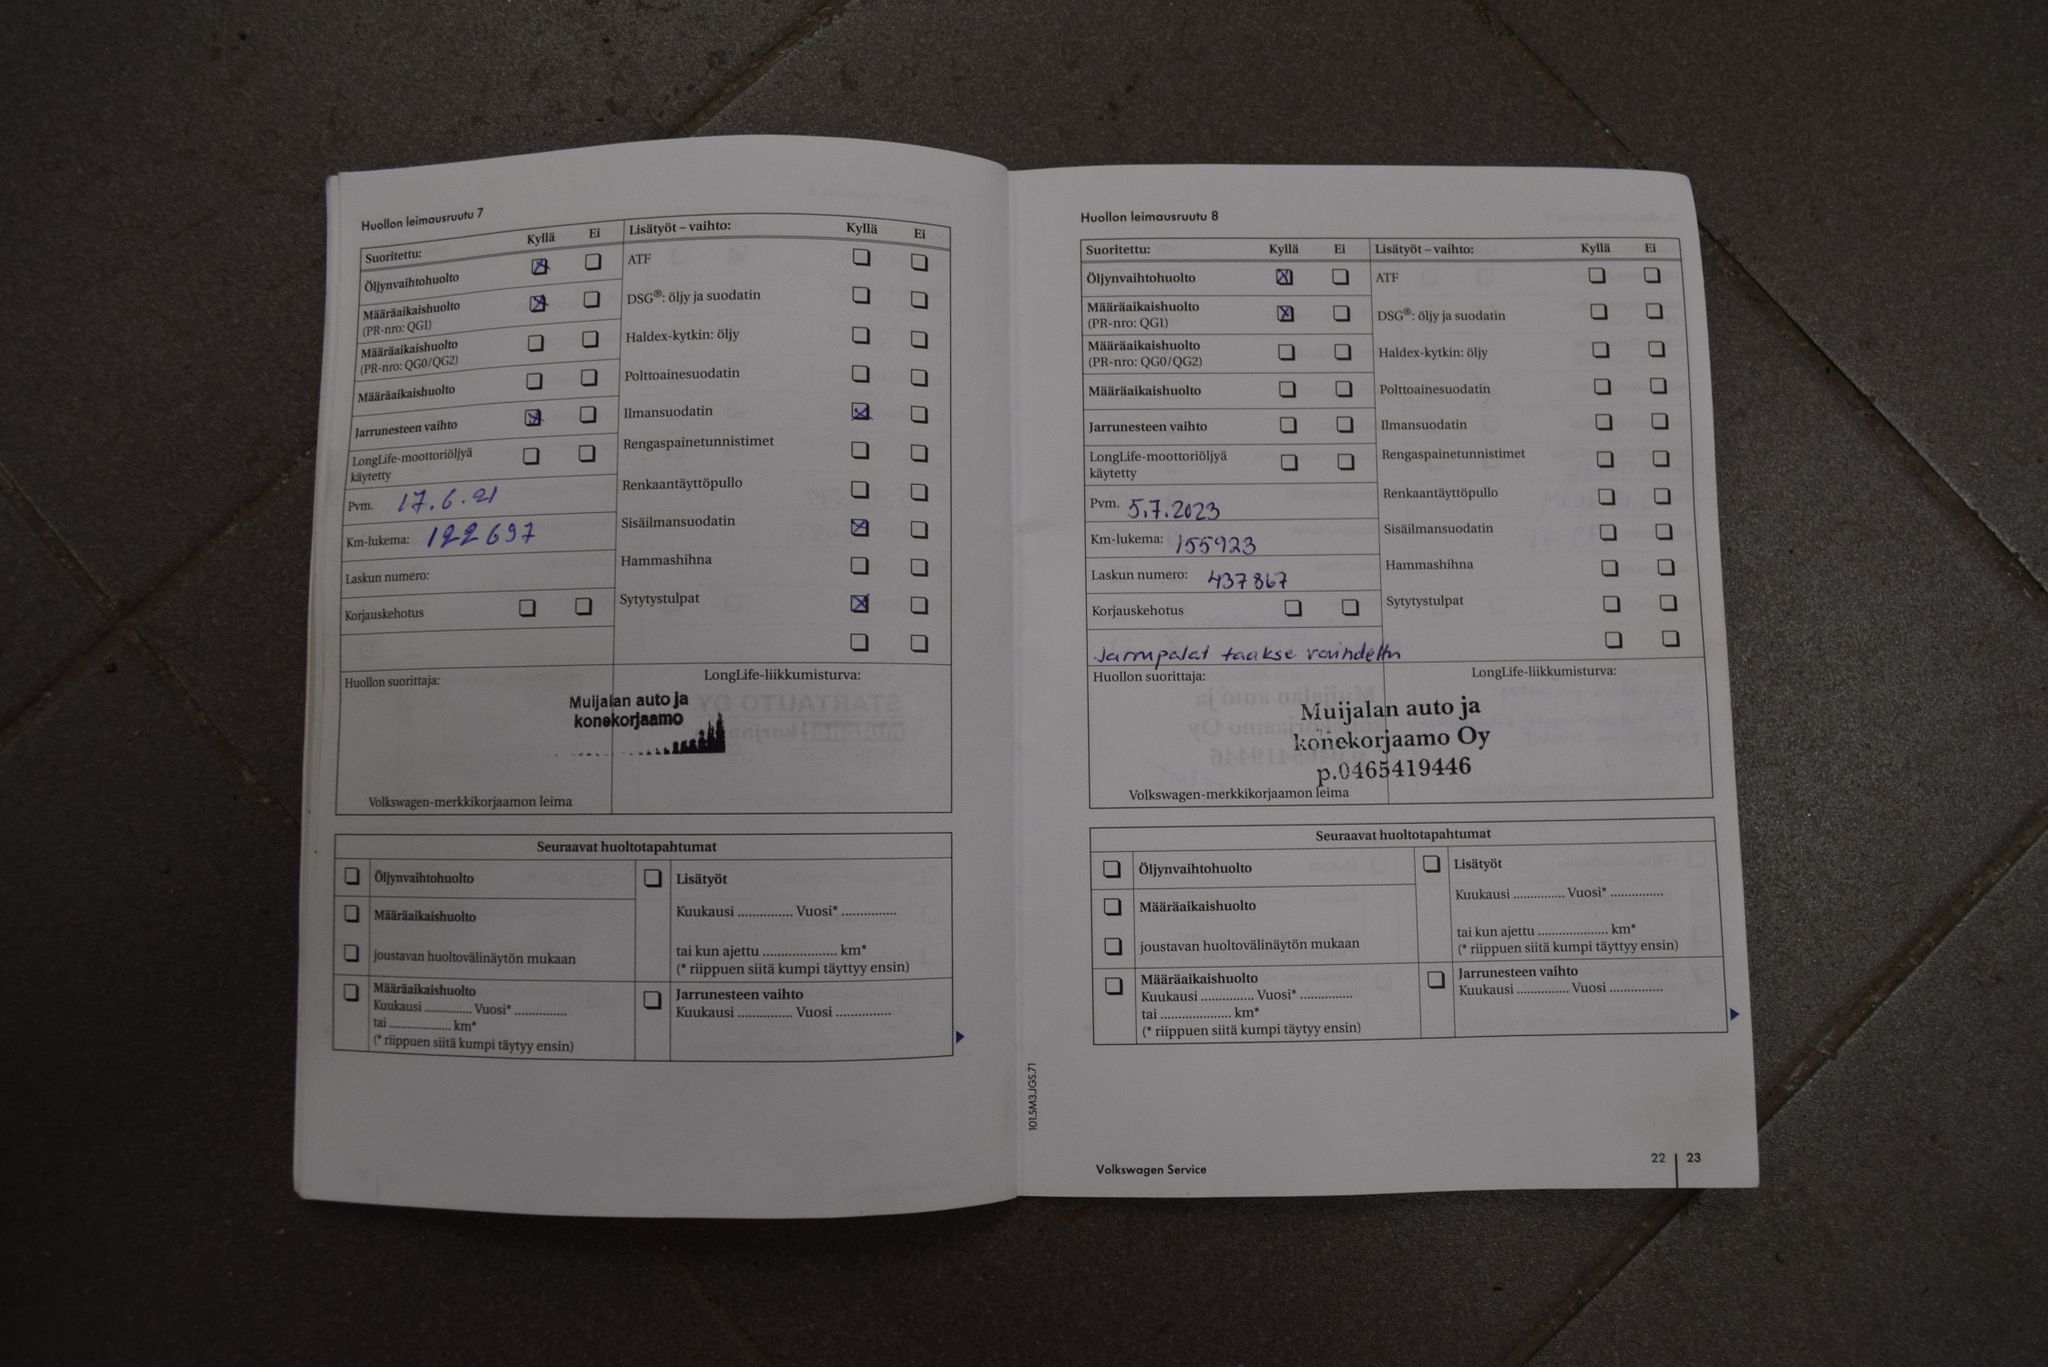 Huollon leimausruutu 7
Suoritettu: Kyllä Ei
Öljynvaihtohuolto
Määräaikaishuolto
(PR-nro: QG1)
Määräaikaishuolto
(PR-nro: QG0/QG2)
Määräaikaishuolto
Jarrunesteen vaihto
LongLife-moottoriöljyä
käytetty
Pvm. 17.6.21
Km-lukema: 122697
Laskun numero:
Korjauskehotus
Lisätyöt – vaihto: Kyllä Ei
ATF
DSG®: öljy ja suodatin
Haldex-kytkin: öljy
Polttoainesuodatin
Ilmansuodatin
Rengaspainetunnistimet
Renkaantäyttöpullo
Sisäilmansuodatin
Hammashihna
Sytytystulpat
Huollon suorittaja:
LongLife-liikkumisturva:
Muijalan auto ja
konekorjaamo
Volkswagen-merkkikorjaamon leima
Seuraavat huoltotapahtumat
Öljynvaihtohuolto
Määräaikaishuolto
joustavan huoltovälinäytön mukaan
Määräaikaishuolto
Kuukausi .............. Vuosi* ..............
tai .................. km*
(* riippuen siitä kumpi täytyy ensin)
Lisätyöt
Kuukausi .............. Vuosi* ..............
tai kun ajettu .................... km*
(* riippuen siitä kumpi täyttyy ensin)
Jarrunesteen vaihto
Kuukausi .............. Vuosi ..............
Huollon leimausruutu 8
Suoritettu: Kyllä Ei
Öljynvaihtohuolto
Määräaikaishuolto
(PR-nro: QG1)
Määräaikaishuolto
(PR-nro: QG0/QG2)
Määräaikaishuolto
Jarrunesteen vaihto
LongLife-moottoriöljyä
käytetty
Pvm. 5.7.2023
Km-lukema: 155923
Laskun numero: 437867
Korjauskehotus
Jarrupalat taakse vaihdettu
Lisätyöt – vaihto: Kyllä Ei
ATF
DSG®: öljy ja suodatin
Haldex-kytkin: öljy
Polttoainesuodatin
Ilmansuodatin
Rengaspainetunnistimet
Renkaantäyttöpullo
Sisäilmansuodatin
Hammashihna
Sytytystulpat
Huollon suorittaja:
LongLife-liikkumisturva:
Muijalan auto ja
konekorjaamo Oy
p.0465419446
Volkswagen-merkkikorjaamon leima
Seuraavat huoltotapahtumat
Öljynvaihtohuolto
Määräaikaishuolto
joustavan huoltovälinäytön mukaan
Määräaikaishuolto
Kuukausi .............. Vuosi* ..............
tai .................. km*
(* riippuen siitä kumpi täytyy ensin)
Lisätyöt
Kuukausi .............. Vuosi* ..............
tai kun ajettu .................... km*
(* riippuen siitä kumpi täyttyy ensin)
Jarrunesteen vaihto
Kuukausi .............. Vuosi ..............
101.5M3.JGS.71
Volkswagen Service
22 23